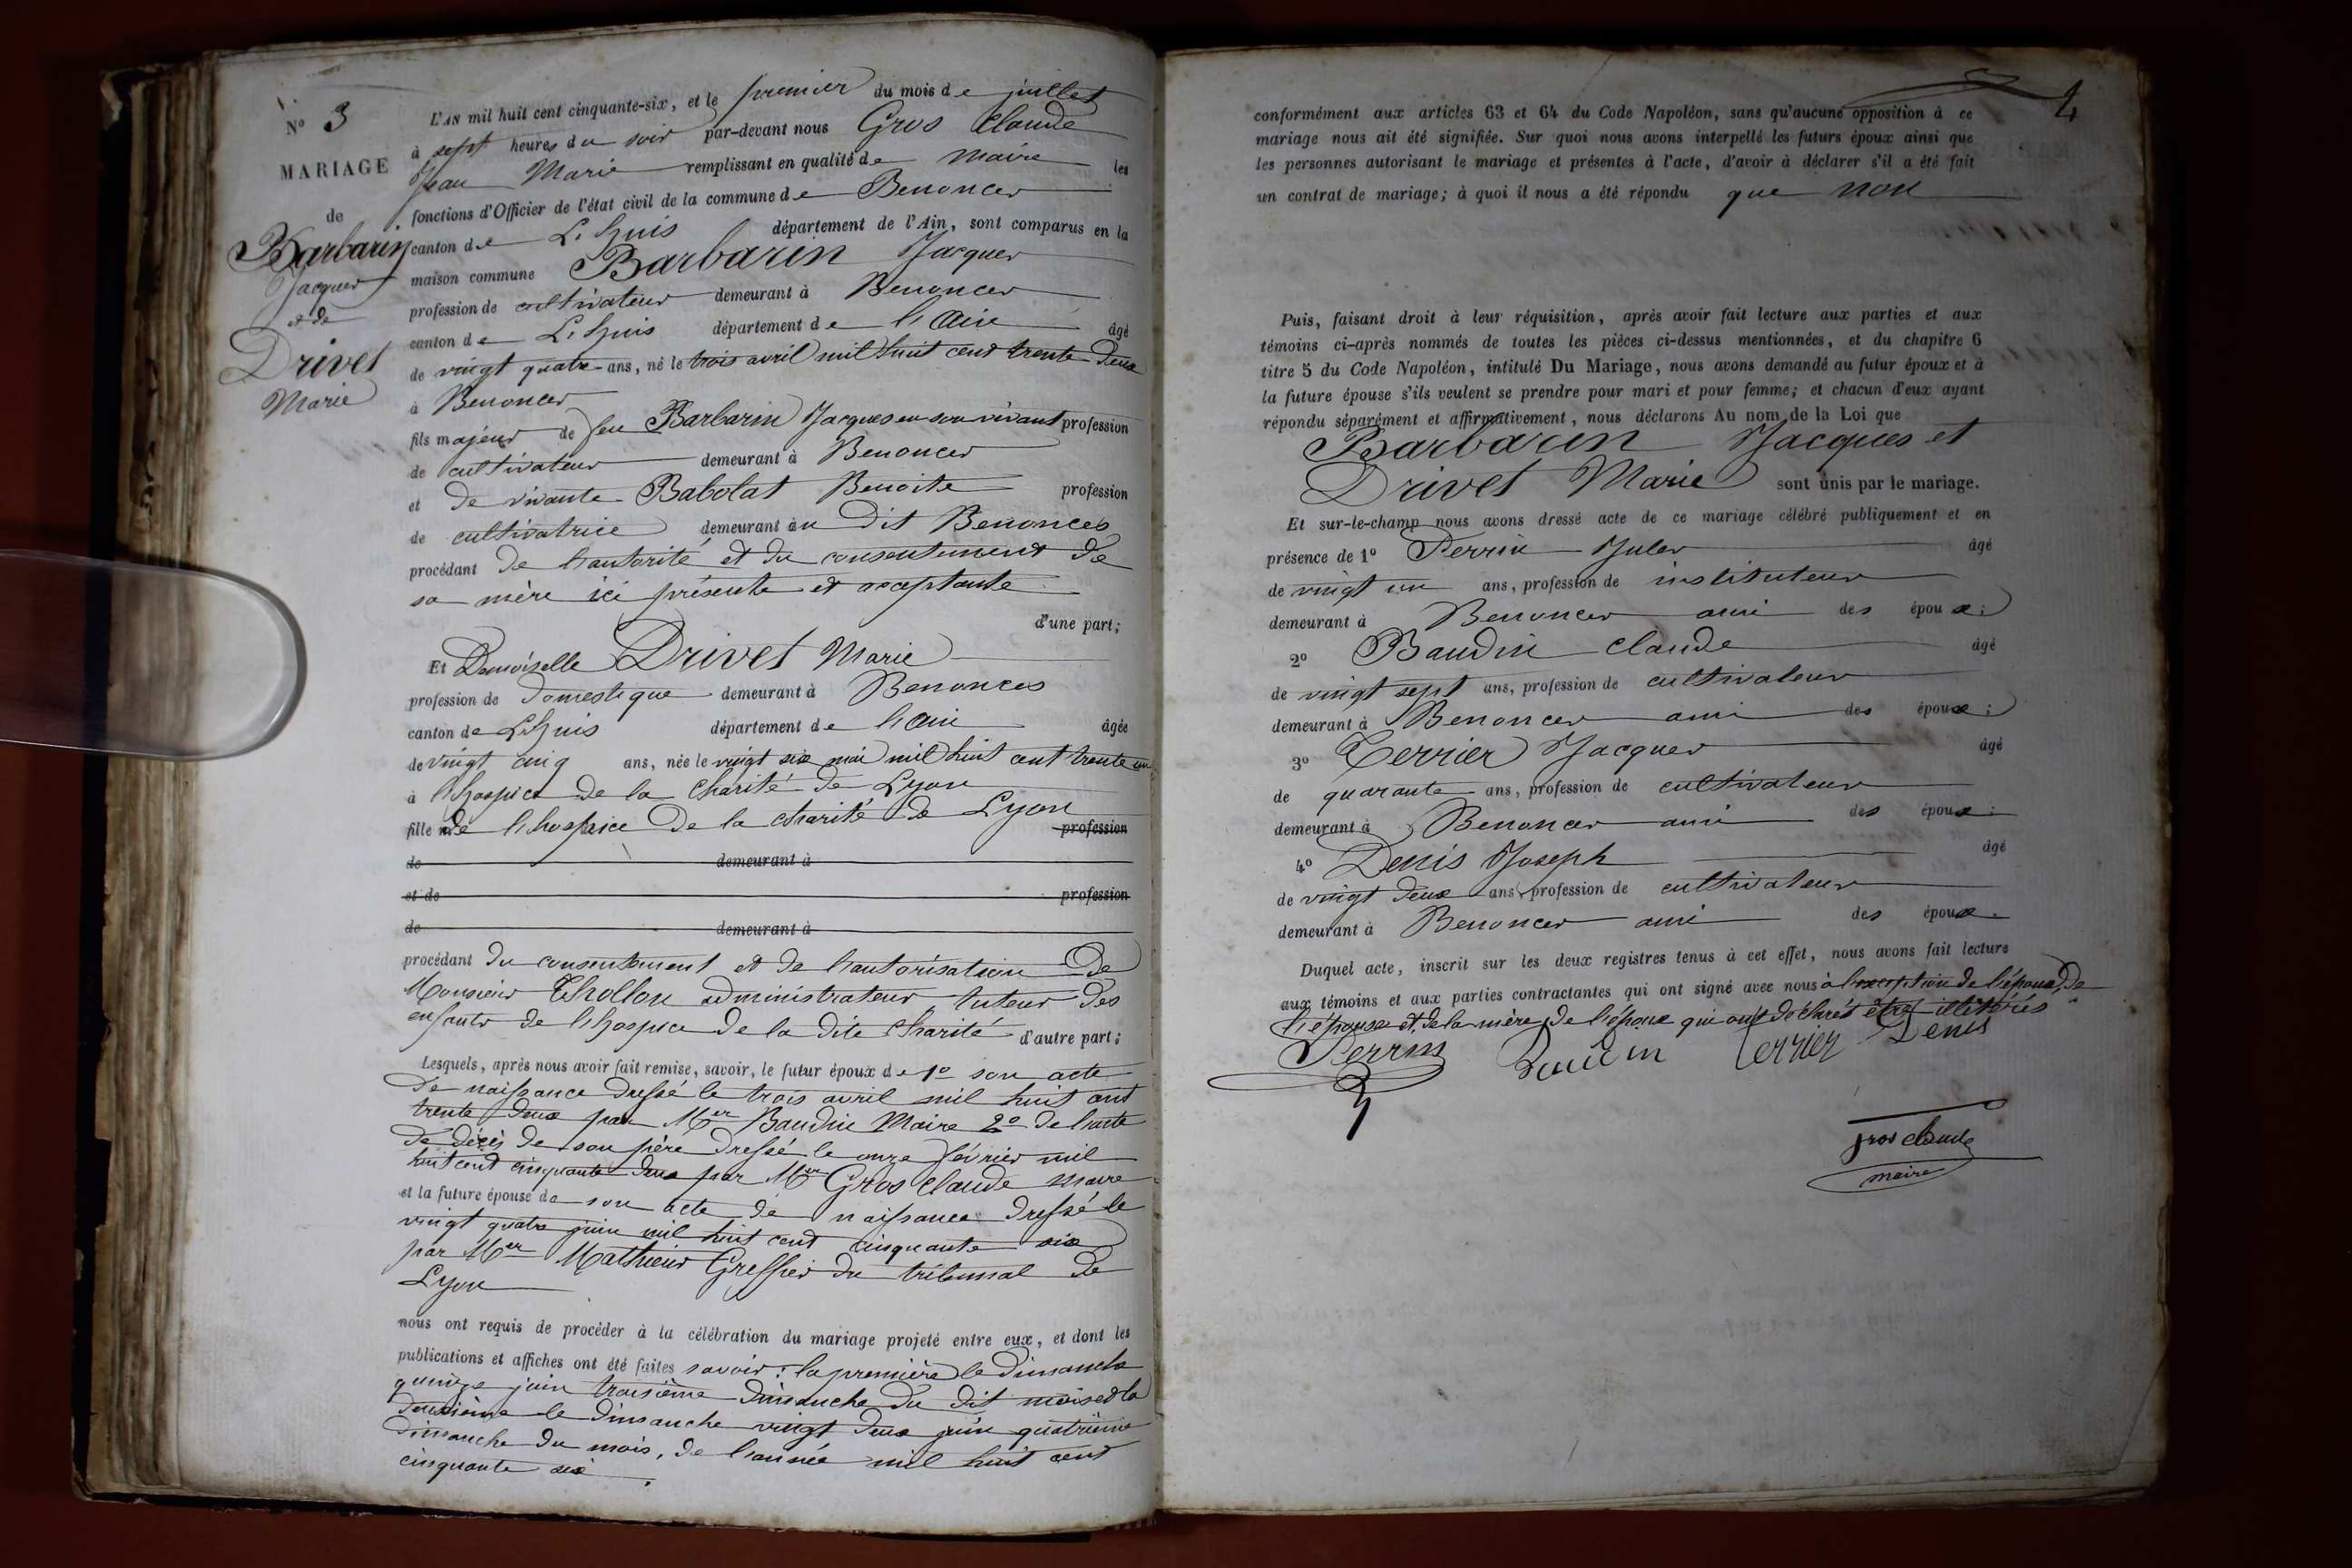 N° 3
MARIAGE
de
Barbarin
Jacques
et de
Drivet
Marie
L'AN mil huit cent cinquante-six, et le premier du mois de juillet
à sept heures du soir par-devant nous Gros Claude
Jean Marie remplissant en qualité de maire les
fonctions d'Officier de l'état civil de la commune de Benonces
canton de L'huis département de l'Ain, sont comparus en la
maison commune Barbarin Jacques
profession de cultivateur demeurant à Benonces
canton de L'huis département de l'Ain âgé
de vingt quatre ans, né le trois avril mil huit cent trente deux
à Benonces
fils majeur de feu Barbarin Jacques en son vivant profession
de cultivateur demeurant à Benonces
et de vivante Babolat Benoite profession
de cultivatrice demeurant au dit Benonces
procédant de l'autorité et du consentement de
sa mère ici présente et acceptante
d'une part;
Et Demoiselle Drivet Marie
profession de domestique demeurant à Benonces
canton de L'huis département de l'Ain âgée
de vingt cinq ans, née le vingt six mai mil huit cent trente un
à l'hospice de la Charité de Lyon
fille de l'hospice de la charité de Lyon profession
de demeurant à
et de profession
de demeurant à
procédant du consentement et de l'autorisation de
Monsieur Thollon administrateur, tuteur des
enfants de l'hospice de la dite Charité d'autre part;
Lesquels, après nous avoir fait remise, savoir, le futur époux de 1° son acte
de naissance dressé le trois avril mil huit cent
trente deux par Mer Baudin Maire 2° de l'acte
de décès de son père dressé le onze février mil
huit cent cinquante deux par Mer Gros Claude maire
et la future épouse de son acte de naissance dressé le
vingt quatre juin mil huit cent cinquante six
par Mer Mathieur Greffier du tribunal de
Lyon
nous ont requis de procéder à la célébration du mariage projeté entre eux, et dont les
publications et affiches ont été faites savoir : la première le dimanche
quinze juin troisième dimanche du dit mois et la
deuxième le dimanche vingt deux juin quatrième
dimanche du mois, de l'année mil huit cent
cinquante six.
4
conformément aux articles 63 et 64 du Code Napoléon, sans qu'aucune opposition à ce
mariage nous ait été signifiée. Sur quoi nous avons interpellé les futurs époux ainsi que
les personnes autorisant le mariage et présentes à l'acte, d'avoir à déclarer s'il a été fait
un contrat de mariage; à quoi il nous a été répondu que non
Puis, faisant droit à leur réquisition, après avoir fait lecture aux parties et aux
témoins ci-après nommés de toutes les pièces ci-dessus mentionnées, et du chapitre 6
titre 5 du Code Napoléon, intitulé Du Mariage, nous avons demandé au futur époux et à
la future épouse s'ils veulent se prendre pour mari et pour femme; et chacun d'eux ayant
répondu séparément et affirmativement, nous déclarons Au nom de la Loi que
Barbarin Jacques et
Drivet Marie sont unis par le mariage.
Et sur-le-champ nous avons dressé acte de ce mariage célébré publiquement et en
présence de 1° Perrin Jules âgé
de vingt un ans, profession de instituteur
demeurant à Benonces ami des époux;
2° Baudin Claude âgé
de vingt sept ans, profession de cultivateur
demeurant à Benonces ami des époux;
3° Terrier Jacques âgé
de quarante ans, profession de cultivateur
demeurant à Benonces ami des époux;
4° Denis Joseph âgé
de vingt deux ans, profession de cultivateur
demeurant à Benonces ami des époux.
Duquel acte, inscrit sur les deux registres tenus à cet effet, nous avons fait lecture
aux témoins et aux parties contractantes qui ont signé avec nous à l'exception de l'époux, de
l'épouse et de la mère de l'époux qui ont déclaré être illitérés
Perrin Baudin Terrier Denis
gros claude
maire